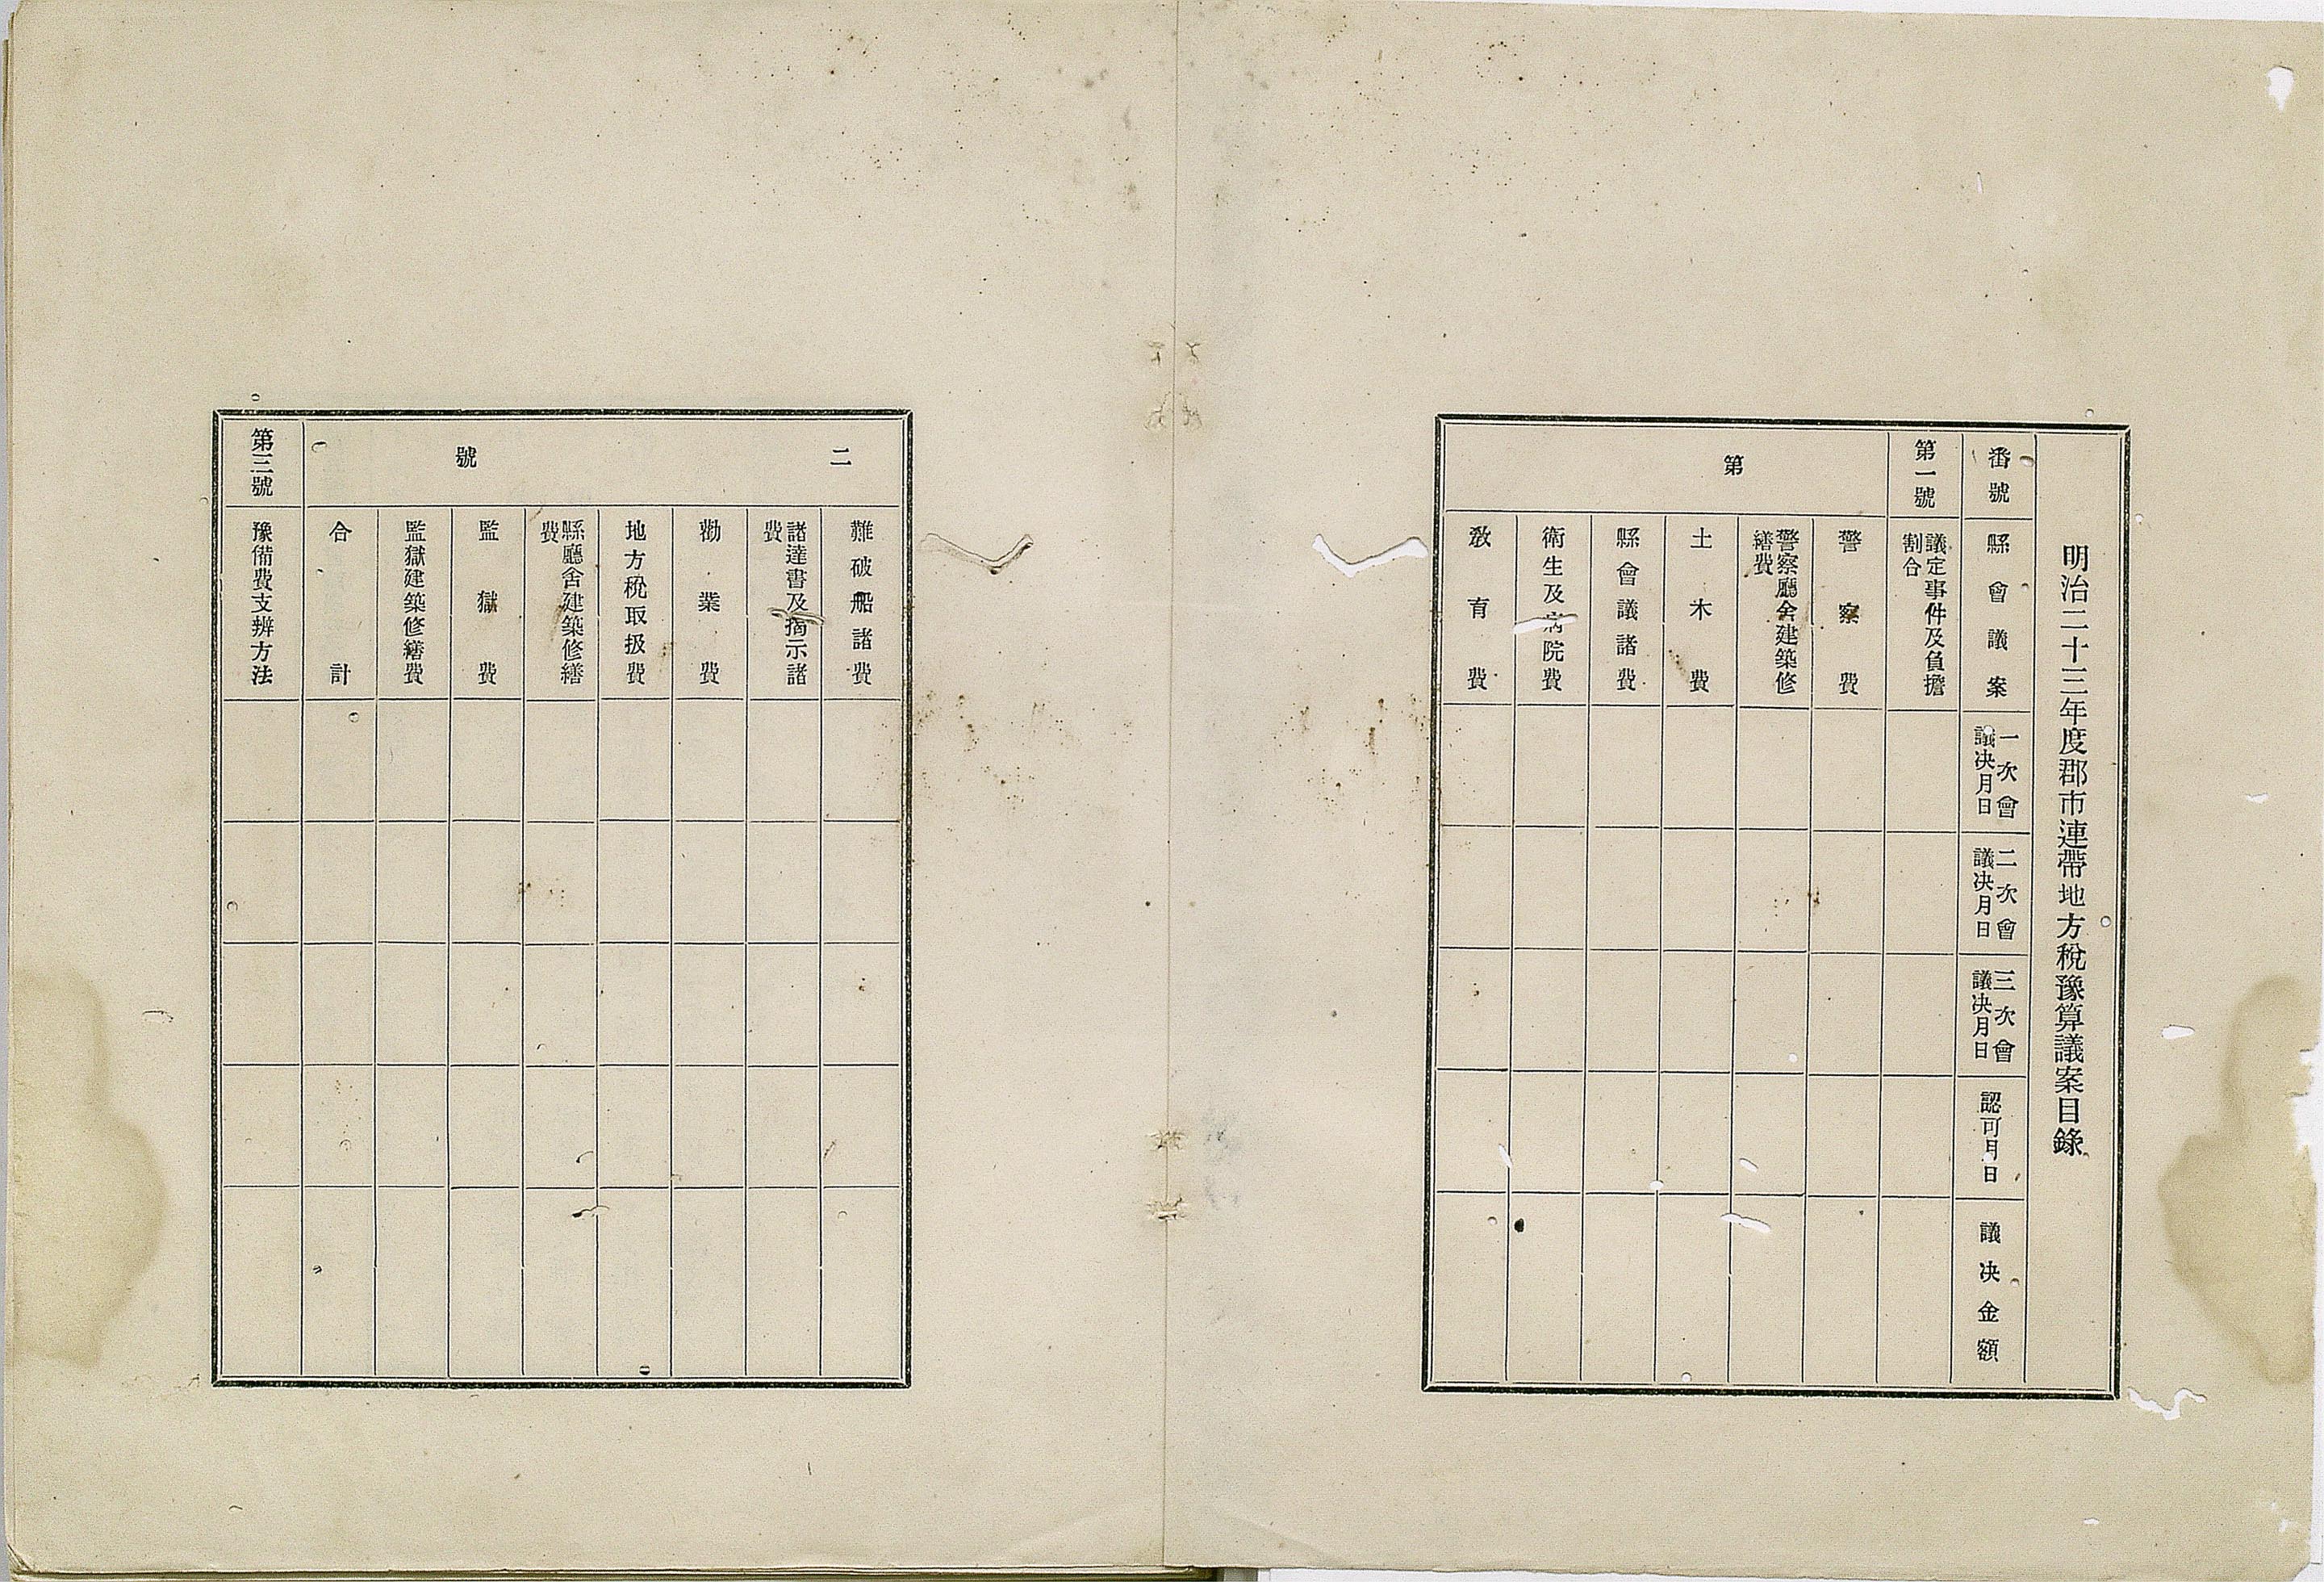 明治二十三年度郡市連帶地方稅豫算議案目錄
番號
縣會議案
一次會
議决月日
二次會
議决月日
三次會
議决月日
認可月日
議决金額
第一號
議定事件及負擔
割合
第
警察費
警察廳舍建築修
繕費
土木費
縣會議諸費
衛生及病院費
敎育費
二
難破船諸費
諸達書及揭示諸
費
勸業費
地方稅取扱費
號
縣廳舍建築修繕
費
監獄費
監獄建築修繕費
合計
第三號
豫備費支辨方法